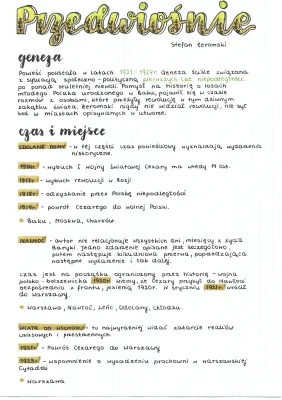 Przedwiośnie
Stefan Żeromski
geneza
Powieść powstała w latach 1921-1924. Geneza ściśle związana
z sytuacją społeczno-polityczną pierwszych lat niepodległości
po ponad stuletniej niewoli. Pomysł na historię o losach
młodego Polaka urodzonego w Baku, pojawił się w czasie
rozmów z osobami, które przeżyły rewolucję w tym dziwnym
zakątku świata. Żeromski nigdy nie widział rewolucji, nie był
też w miastach opisywanych w utworze.
czas i miejsce
SZKLANE DOMY - w tej części czas powieściowy wyznaczają wydarzenia
historyczne.
1914r. - wybuch I wojny światowej Cezary ma wtedy 14 lat.
1917r. - wybuch rewolucji w Rosji
1918r. - odzyskanie przez Polskę niepodległości
1919r. - powrót Cezarego do wolnej Polski.
Baku, Moskwa, Charków.
NAWŁOĆ - autor nie relacjonuje wszystkich dni, miesięcy z życia
Baryki. Jedno zdarzenie opisane jest szczegółowo,
potem następuje kilkudniowa przerwa, poprzedzająca
następne wydarzenie i tak dalej.
Czas jest na początku ograniczony przez historię - wojna
polsko-bolszewicka 1920r. Wiemy, że Cezary przybył do Nawłoci
bezpośrednio z frontu, jesienią 1920r. W styczniu 1921r. wrócił
do Warszawy.
Warszawa, Nawłoć, Leniec, Odolany, Chłodek.
WIATR OD WSCHODU - tu najwyraźniej widać zatarcie realiów
czasowych i przestrzennych.
1921r. - Powrót Cezarego do Warszawy
1923r. - wspomnienie o wysadzeniu prochowni w warszawskiej
Cytadeli
Warszawa